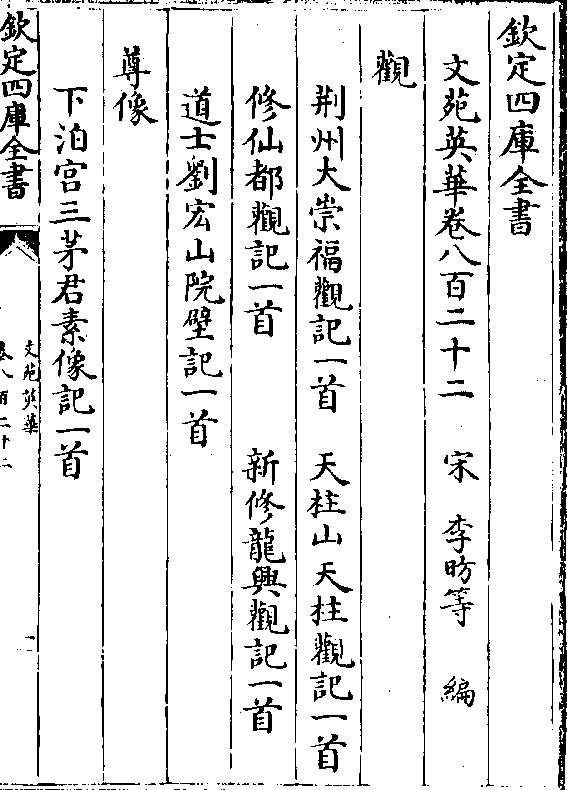 欽定四庫全書
文苑英華卷八百二十二　宋　李昉等　編
觀
荆州大崇福觀記一首　天柱山天柱觀記一首
修仙都觀記一首　新修龍興觀記一首
道士劉宏山院壁記一首
尊像
下泊宫三茅君素像記一首
欽定四庫全書
文苑英華
卷八百二十二
一